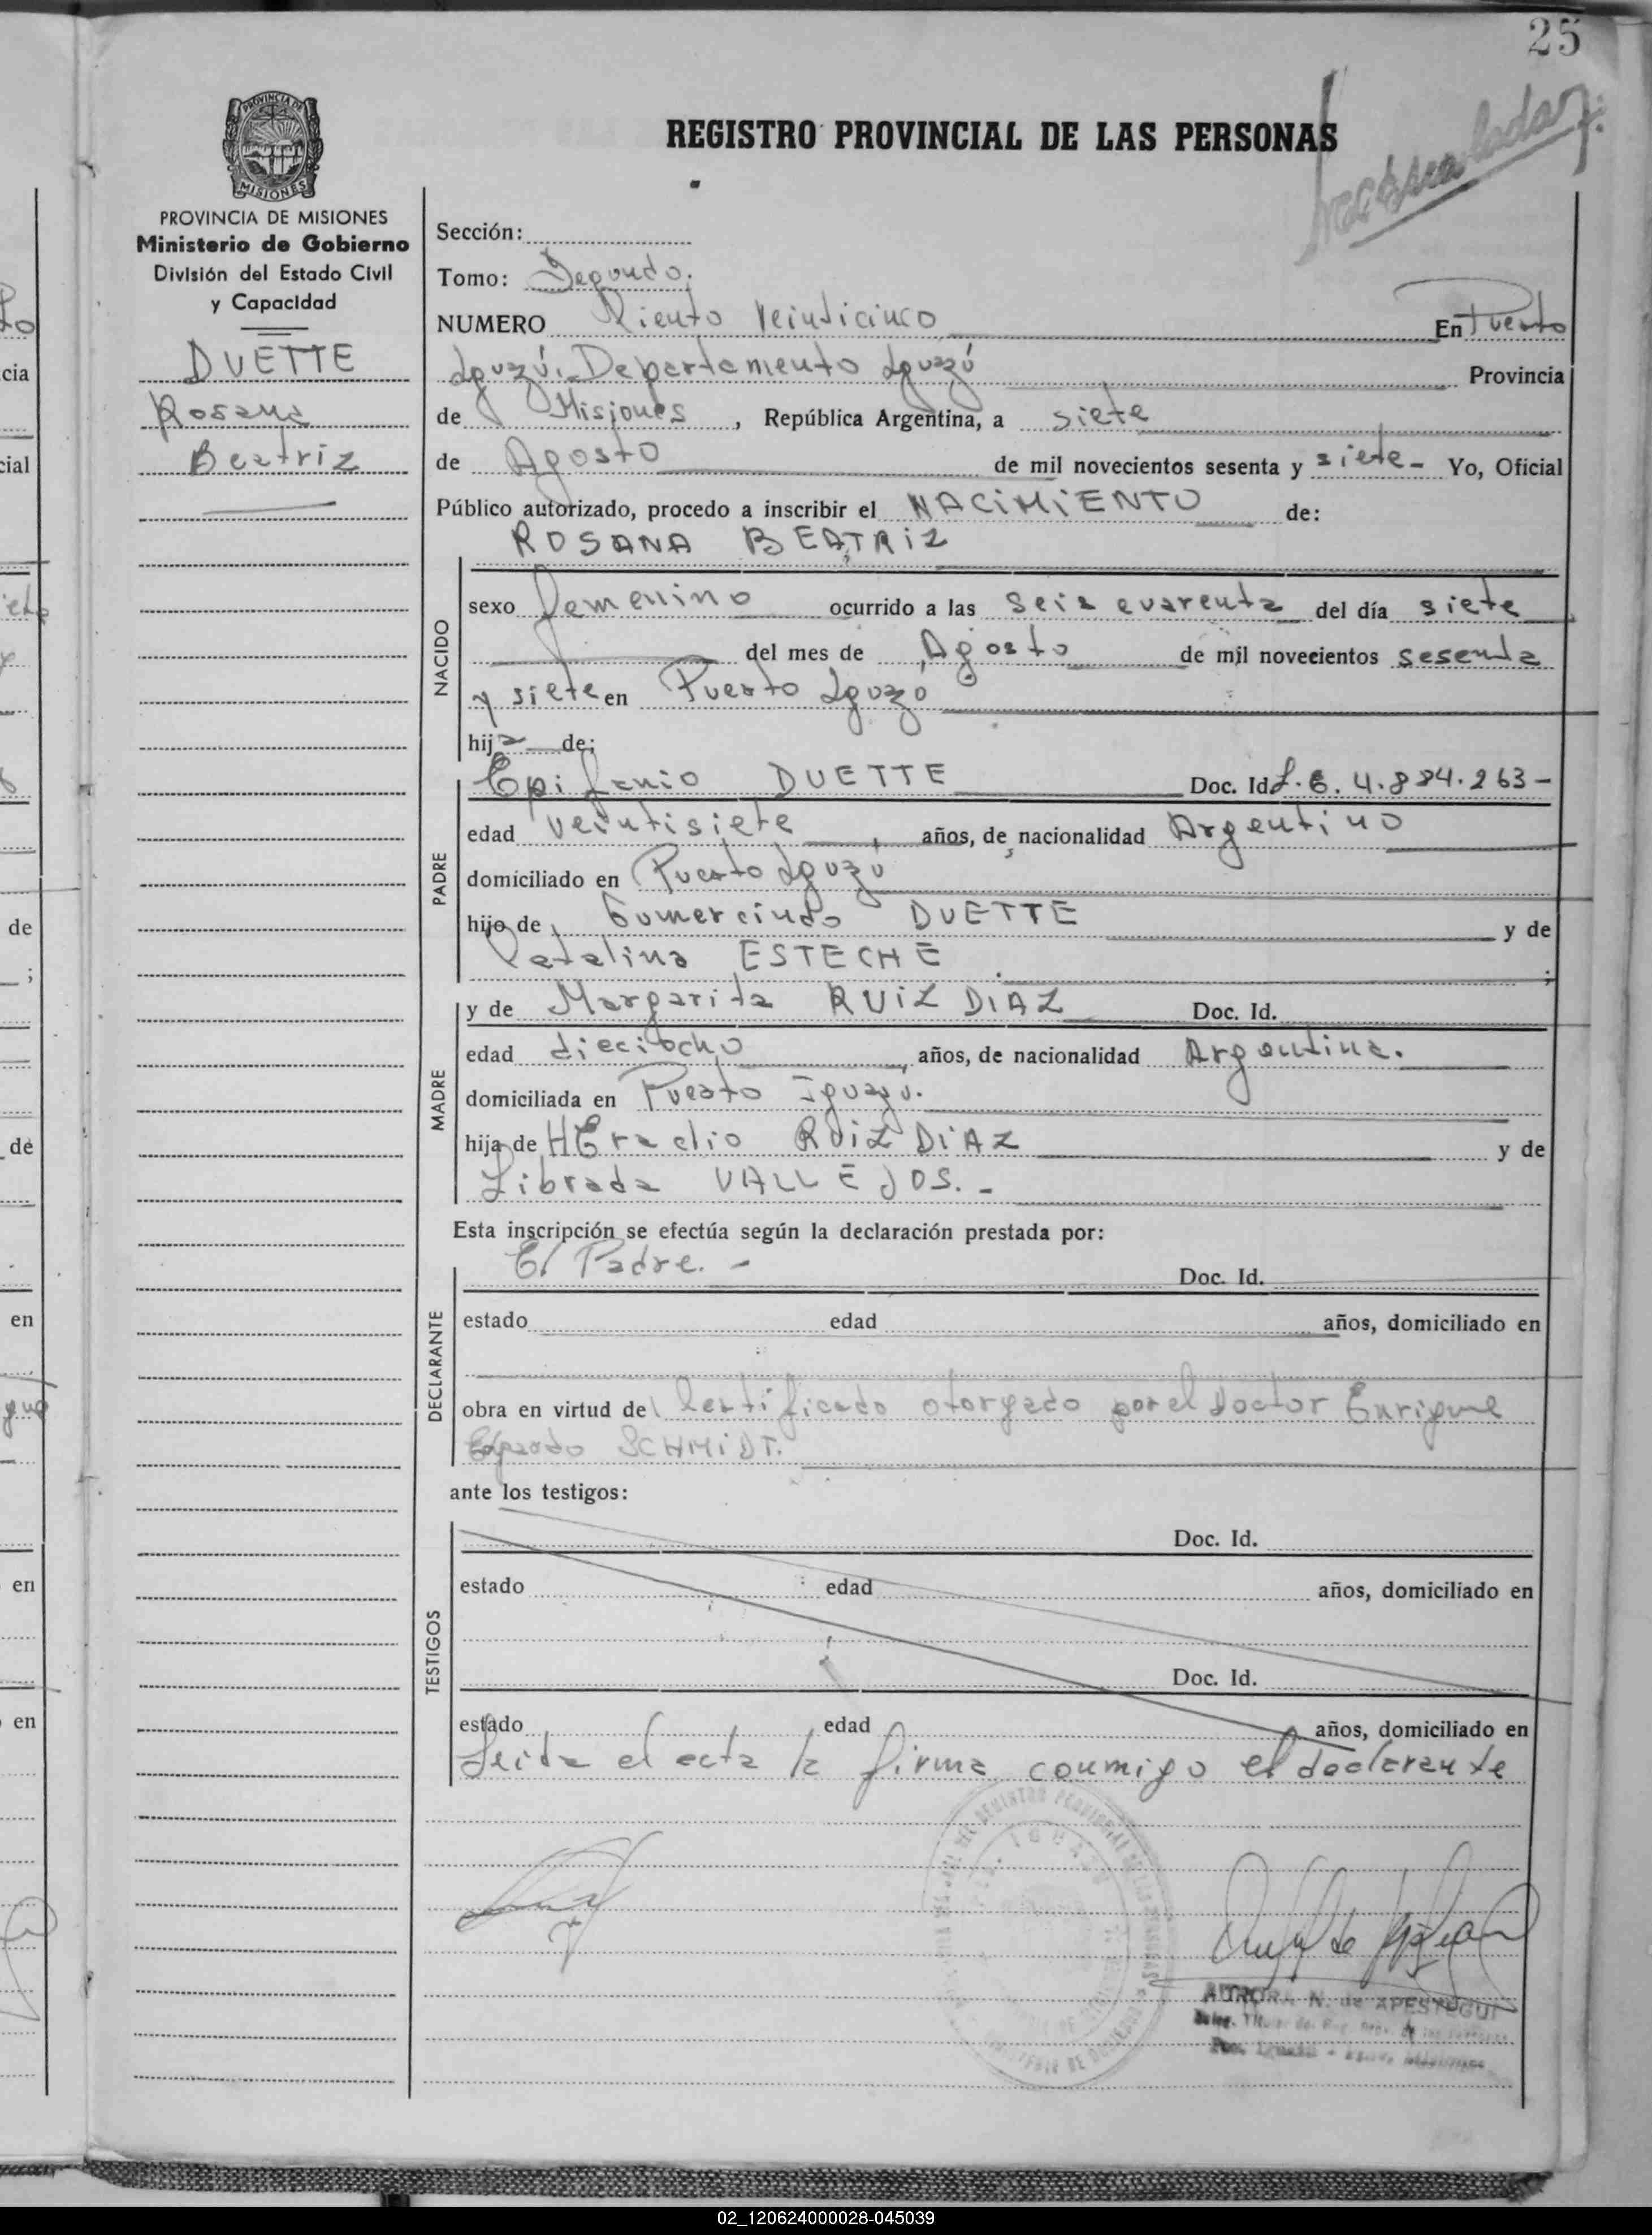 25
REGISTRO PROVINCIAL DE LAS PERSONAS
PROVINCIA DE
MISIONES
PROVINCIA DE MISIONES
Ministerio de Gobierno
División del Estado Civil
y Capacidad
DUETTE
Rosana
Beatriz
Sección:
Tomo: Segundo.
NUMERO Ciento Veinticinco En Puerto
Iguazú. Departamento Iguazú Provincia
de Misiones, República Argentina, a siete
de Agosto de mil novecientos sesenta y siete - Yo, Oficial
Público autorizado, procedo a inscribir el NACiMiENTO de:
ROSANA BEATRiZ
NACIDO
sexo femenino ocurrido a las seis cuarenta del día siete
del mes de Agosto de mil novecientos sesenta
y siete en Puerto Iguazú
hija de:
PADRE
Epifanio DUETTE Doc. Id.
edad veintisiete, años, de nacionalidad Argentino
domiciliado en Puerto Iguazú
hijo de Gumercindo DUETTE y de
Catalina ESTECHE ;
MADRE
y de Margarita RUiZ DIAZ Doc. Id.
edad dieciocho, años, de nacionalidad Argentina.
domiciliada en Puerto Iguazú.
hija de HEraclio RUiZ DiAZ y de
Librada VALLEJOS. -
Esta inscripción se efectúa según la declaración prestada por:
DECLARANTE
El Padre. - Doc. Id.
estado edad años, domiciliado en
obra en virtud del Certificado otorgado por el Doctor Enrique
Edgardo SCHMiDT.
ante los testigos:
TESTIGOS
Doc. Id.
estado edad años, domiciliado en
Doc. Id.
estado edad años, domiciliado en
Leida el acta la firma conmigo el declarante
AURORA N. de APESTEGUI
02_120624000028-045039